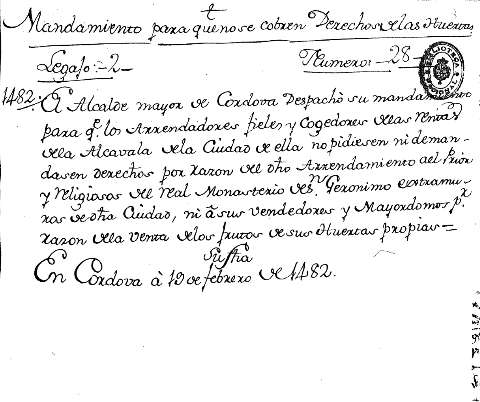 t
Mandamiento para que no se cobren Derechos de las Huertas
Legajo:-2- Numero:-28-
BIBLIOTECA
1482. El Alcalde mayor de Cordova Despachò su mandamiento
para q.e los Arrendadores fieles, y Cogedores de las Rentas
de la Alcavala de la Ciudad de ella no pidiesen ni deman
dasen derechos por razon de dho Arrendamiento al Prior
y Religiosos del Real Monasterio de Sn. Geronimo extramu-
ros de dha Ciudad, ni â sus vendedores y Mayordomos pr.
razon de la Venta de los frutos de sus Huertas propias=
Su fha
En Cordova à 19 de febrero de 1482.